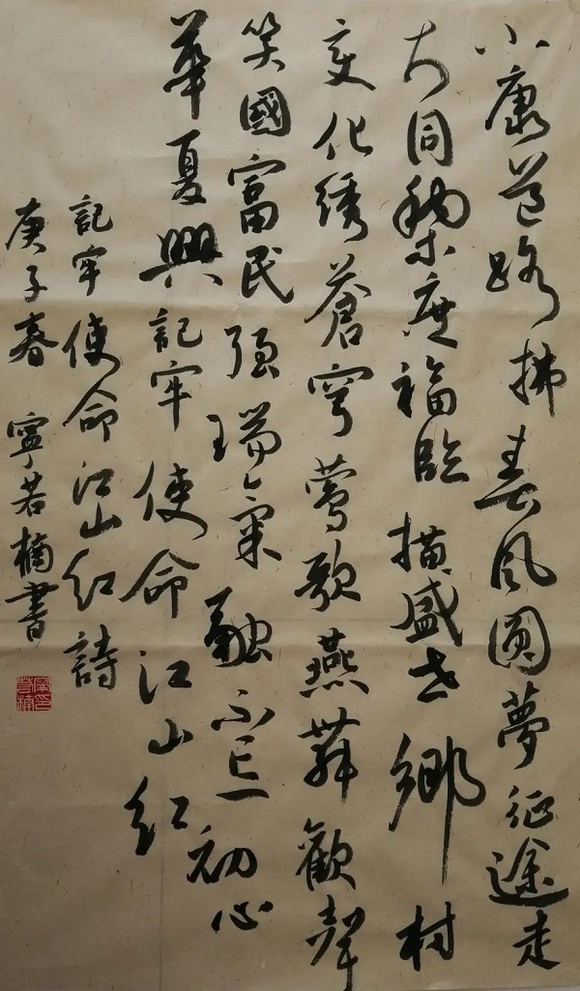 小康道路拂春风圓夢征途走
大同黎庶福臨描盛世鄉村
变化绣蒼穹鶯歌燕舞歡聲
笑國富民强瑞氣融不忘初心
華夏興記牢使命江山红
記牢使命江山红詩
庚子春 寧若楠書